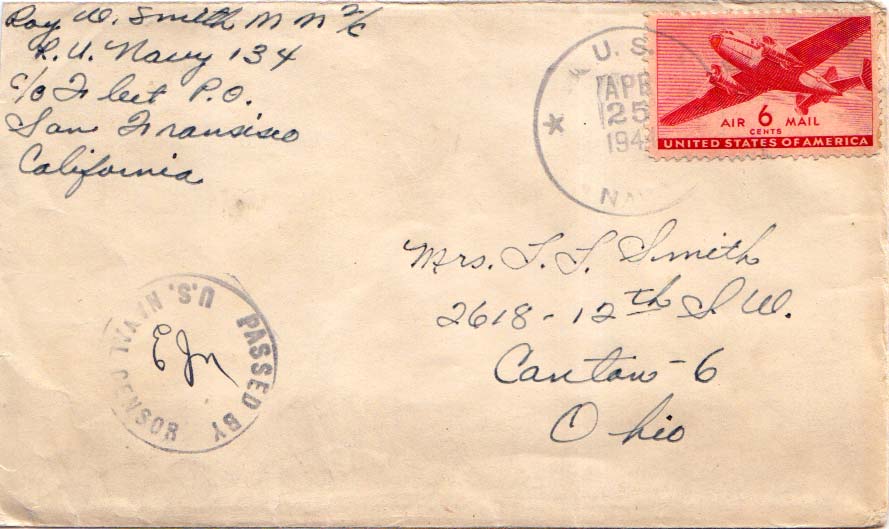 Roy W. Smith M M 2/c
R. U. Navy 134
c/o Fleet P.O.
San Fransisco
California
U.S.
APR
25
194
NAV
AIR 6 MAIL
CENTS
UNITED STATES OF AMERICA
Mrs. L. L. Smith
2618-12th S. W.
Canton-6
Ohio
PASSED BY
U.S. NAVAL CENSOR